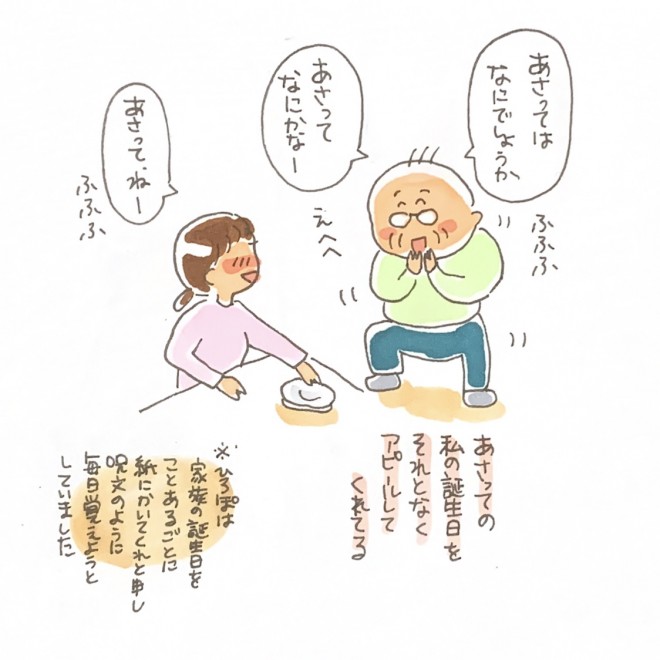 あさっては
なにでしょうか
ふふふ
あさって
なにかなー
えへへ
あさって、ねー
ふふふ
あさっての
私の誕生日を
それとなく
アピールして
くれてる
※ひろぽは
家族の誕生日を
ことあるごとに
紙にかいてくれと申し
呪文のように
毎日覚えようと
していました